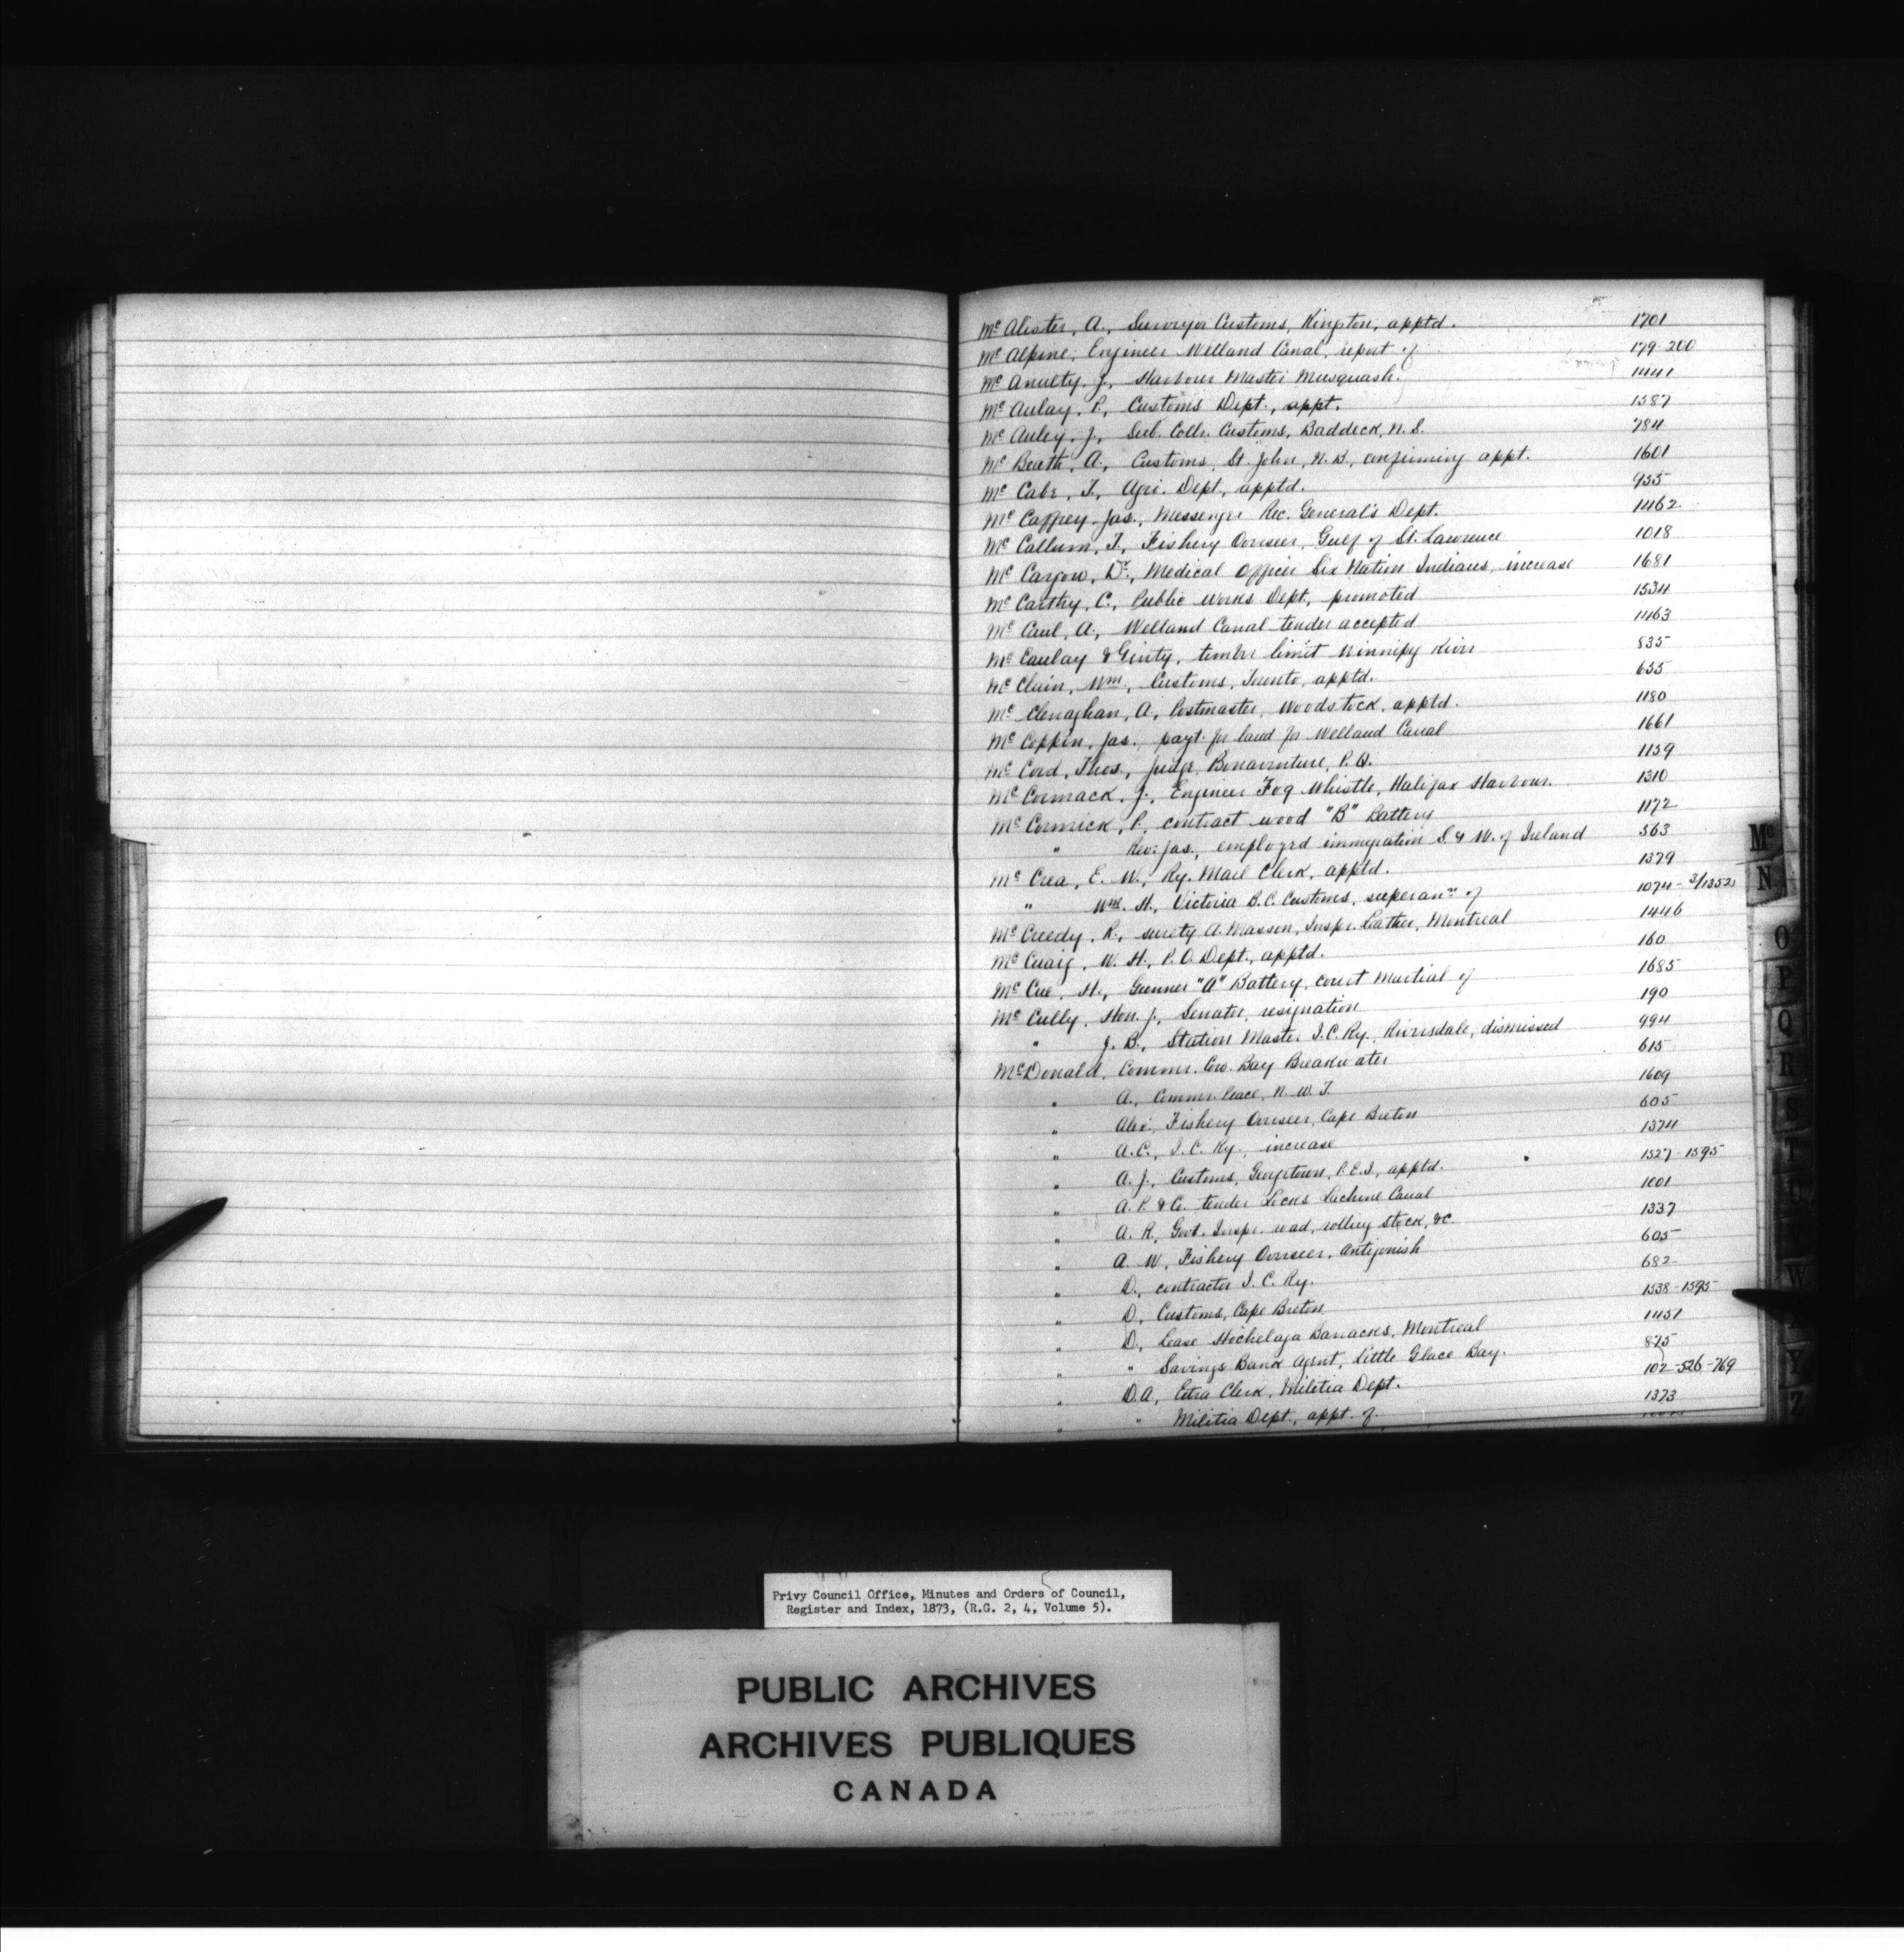 McAlister, A., Surveyor Customs, Kingston, apptd. 1701
McAlpine, Engineer Welland Canal, report of 179-200
McAnulty, J., Harbour Master Musquash. 1441
McAulay, P., Customs Dept., appt. 1587
McAuley, J., Sub. Collr. Customs, Baddeck, N.S. 784
McBeath, A., Customs, St. John, N.B., confirming appt. 1601
McCabe, T., Agri. Dept., apptd. 955
McCaffrey, Jas., Messenger Rec. General's Dept. 1462
McCallum, T., Fishery Overseer, Gulf of St. Lawrence 1018
McCargow, Dr., Medical Officer Six Nation Indians, increase 1681
McCarthy, C., Public Works Dept., promoted 1534
McCaul, A., Welland Canal tender accepted 1463
McCaulay & Ginty, timber limit Winnipg River 835
McClain, Wm., Customs, Toronto, apptd. 655
McClenaghan, A., Postmaster, Woodstock, apptd. 1180
McCoppin, Jas., payt. for land for Welland Canal 1661
McCord, Thos., Judge, Bonaventure, P.Q. 1159
McCormack, J., Engineer Fog Whistle, Halifax Harbour. 1310
McCormick, P., contract wood "B" Battery 1172
" Rev: Jas., employed immigration S. & W. of Ireland 563
McCrea, E. W., Ry. Mail Clerk, apptd. 1379
" Wm. H., Victoria B.C. Customs, superann of 1074-3/1352
McCreedy, R., surety A. Masson, Inspr. Leather, Montreal 1446
McCuaig, W. H., P.O. Dept., apptd. 160
McCue, H., Gunner "A" Battery, court martial of 1685
McCully, Hon. J., Senator, resignation 190
" J. B., Station Master I.C. Ry., Riversdale, dismissed 994
McDonald, Commr. Cow Bay Breakwater 615
" A., Commr. Peace, N.W.T. 1609
" Alex., Fishery Overseer, Cape Breton 605
" A.C., I.C. Ry., increase 1374
" A. J., Customs, Georgetown, P.E.I., apptd. 1527-1595
" A. P. & Co. tender Locks Lachine Canal 1001
" A. R., Govt. Inspr. road, rolling stock, &c. 1337
" A. W., Fishery Overseer, Antigonish 605
" D., contractor I. C. Ry. 682
" D., Customs, Cape Breton 1538-1595
" D., Lease Hochelaga Barracks, Montreal 1451
" " Savings Bank Agent, Little Glace Bay. 875
" D. A., Extra Clerk, Militia Dept. 102-526-769
" " Militia Dept., appt. of 1373
Mc
N
O
P
Q
R
S
T
U
W
Y
Z
Privy Council Office, Minutes and Orders of Council,
Register and Index, 1873, (R.G. 2, 4, Volume 5).
PUBLIC ARCHIVES
ARCHIVES PUBLIQUES
CANADA